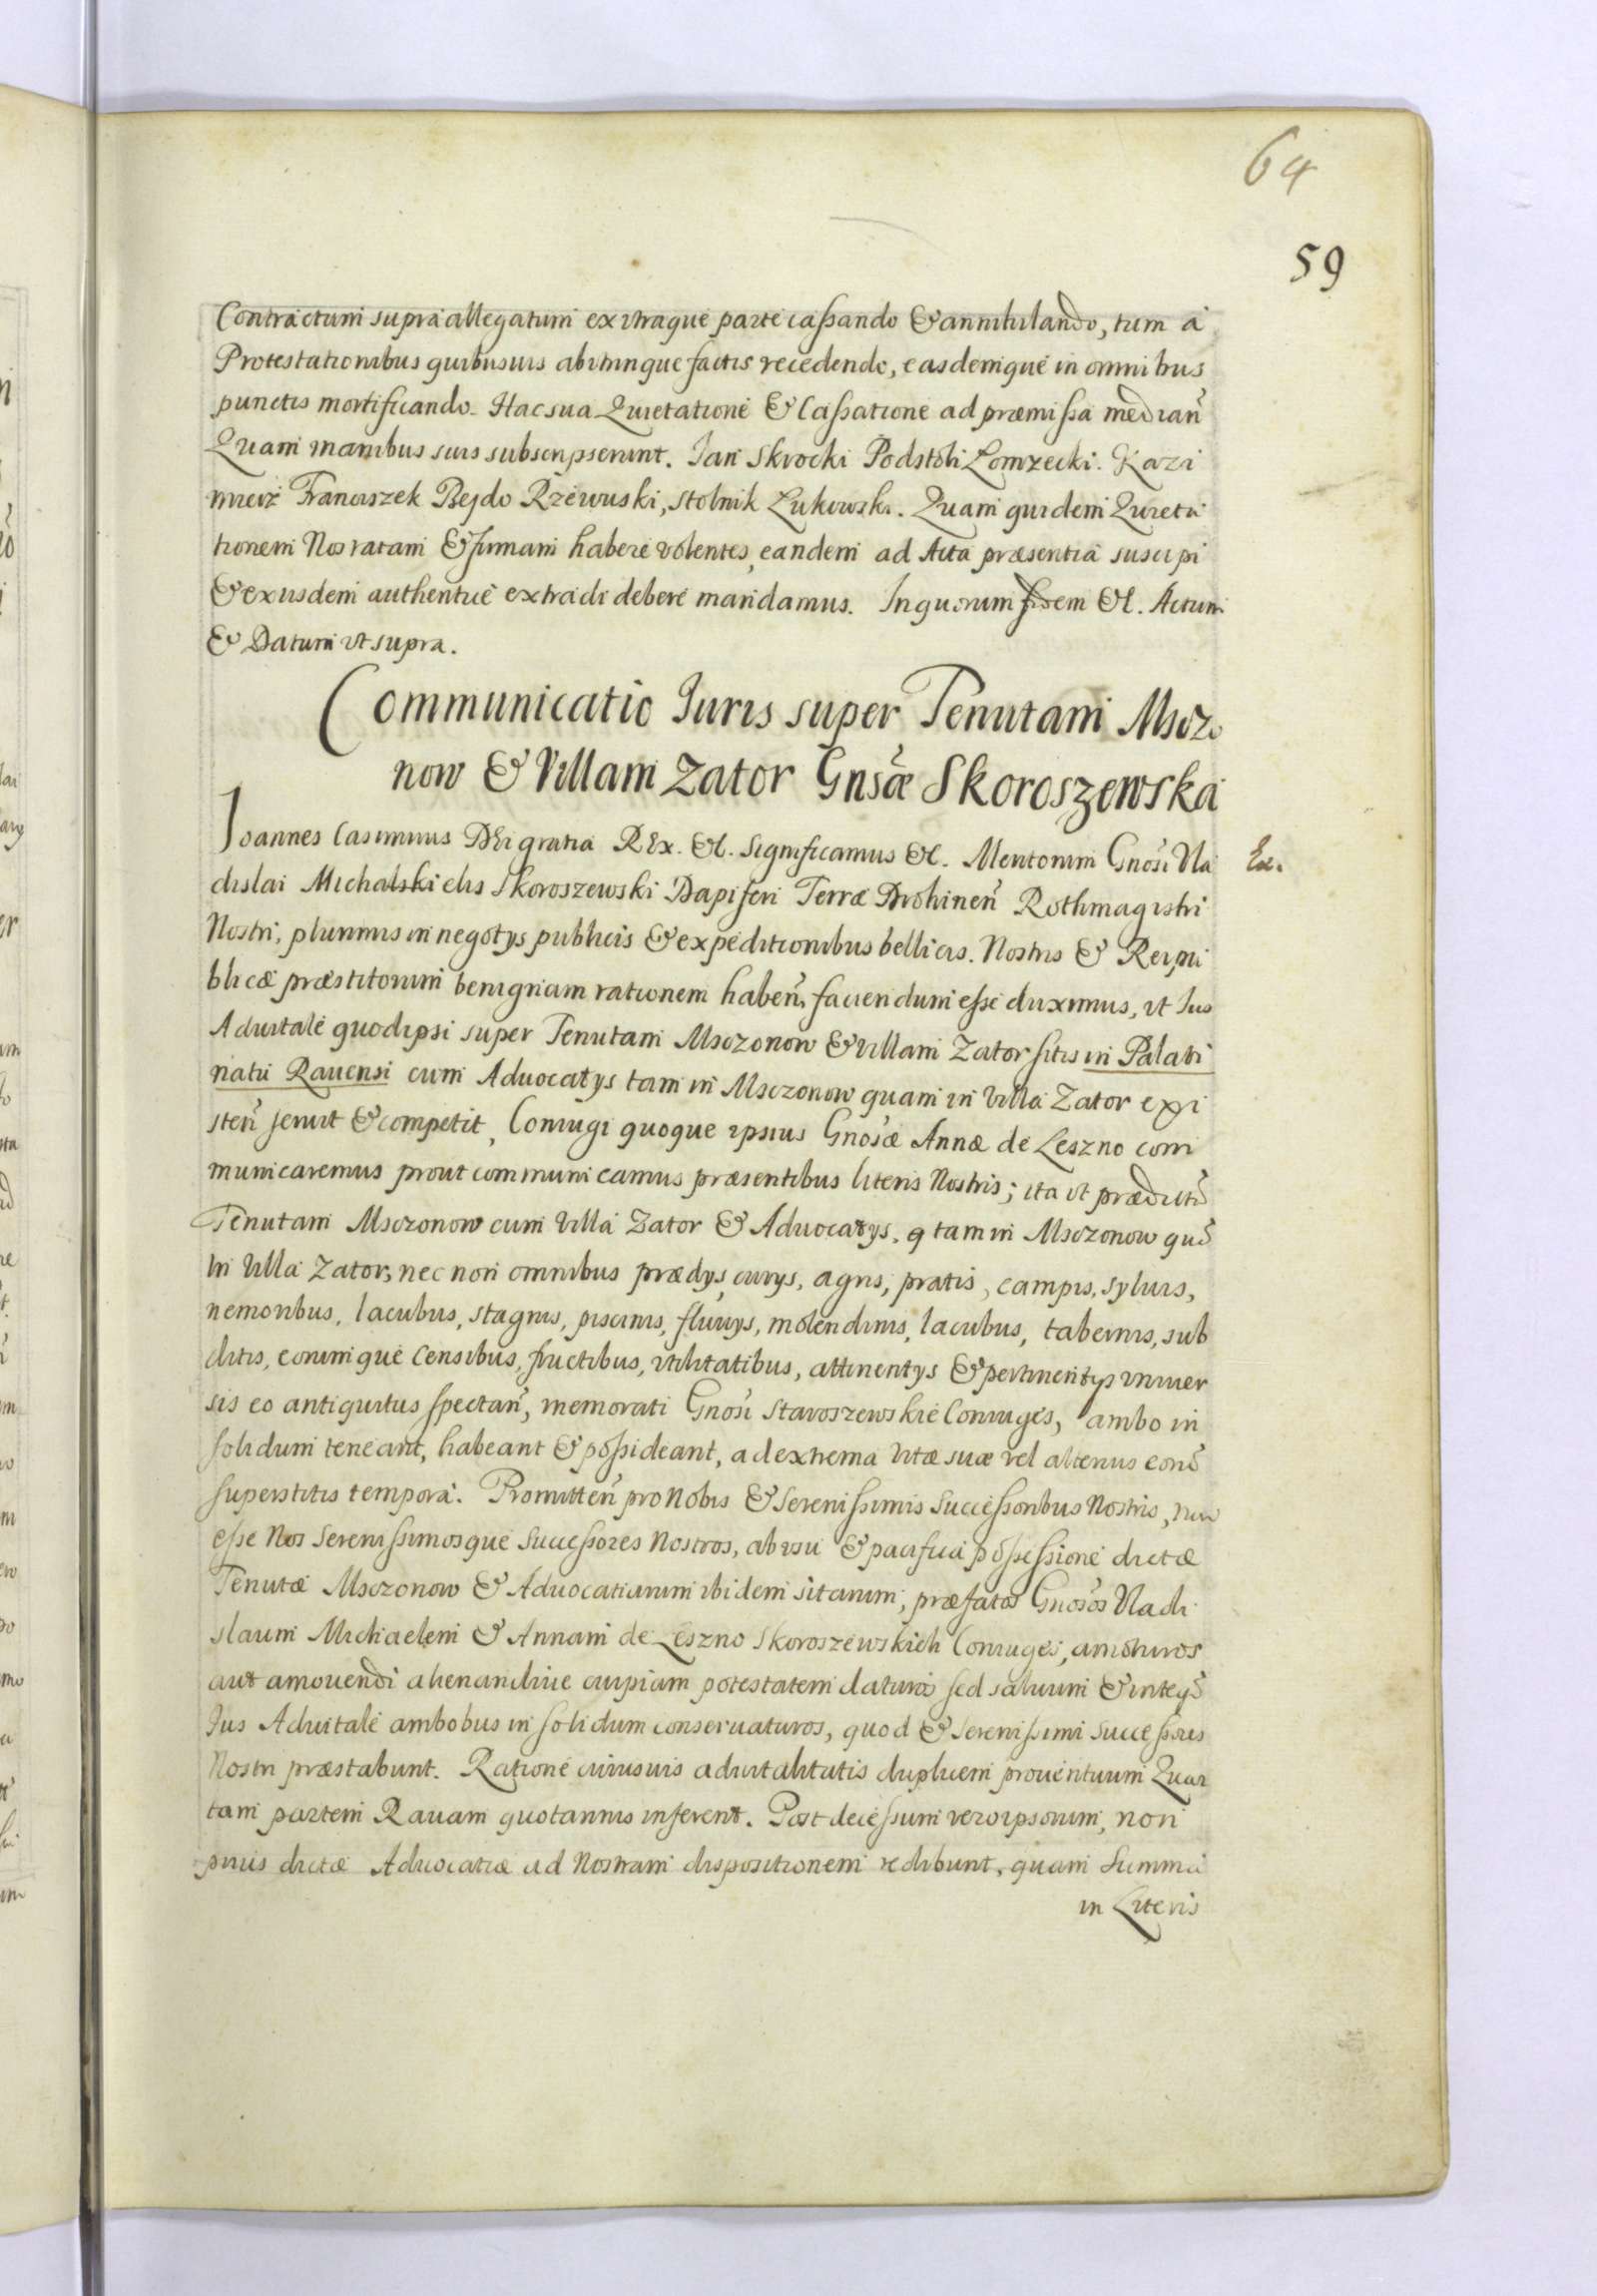 64
59
Contractum supra allegatum ex vtraque parte cassando & annihilando, tum a
Protestationibus quibusuis abvtrinque factis recedendo, easdemque in omnibus
punctis mortificando. Hac sua Quietatione & Cassatione ad præmissa median̄
Quam manibus suis subscripserunt. Jan Skrocki Podstoli Łomzecki. Kazi
mierz Franciszek Bejdo Rzewuski, stolnik Łukowski. Quam quidem Quieta
tionem Nos ratam & firmam habere volentes, eandem ad Acta præsentia suscipi
& exiisdem authentice extradi debere mandamus. In quorum fidem &c. Actum
& Datum vt supra.
Communicatio Juris super Tenutam Msczo
now & Villam Zator Gnsæ Skoroszewska
Joannes Casimirus DEi gratia REx. &c. Significamus &c. Meritorum Gnosi Vla
Ex.
dislai Michalskielis Skoroszewski Dapiferi Terræ Drohinen̄ Rothmagistri
Nostri, plurimis in negotys publicis & expeditionibus bellicis. Nostris & Reipu
blicæ præstitorum benignam rationem haben̄, faciendum esse duximus, vt Jus
Aduitale quodipsi super Tenutam Msczonow & villam Zator sitis in Palati
natu Rauensi cum Aduocatys tam in Msczonow quam in villa Zator exi
sten̄ seruit & competit, Coniugi quoque ipsius Gnosæ Annæ de Leszno com
municaremus prout communicamus præsentibus literis Nostris; ita vt prædictā
Tenutam Msczonow cum villa Zator & Aduocatys, q tam in Msczonow quā
in villa Zator, nec non omnibus prædys, curys, agris, pratis, campis, syluis,
nemoribus, lacubus, stagnis, piscinis, fluuys, molendinis, lacubus, tabernis, sub
ditis, eorumque Censibus, fructibus, vtilitatibus, attinentys & pertinentys vniuer
sis eo antiquitus spectan̄, memorati Gnosi Staroszewskie Coniuges, ambo in
solidum teneant, habeant & possideant, ad extrema vitæ suæ vel alterius eorū
superstitis tempora. Promitten̄ pro Nobis & Serenissimis Successoribus Nostris, non
esse Nos Serenissimosque Successores Nostros, ab vsu & pacifica possessione dictæ
Tenutæ Msczonow & Aduocatiarum ibidem sitarum, præfatos Gnosos Vladi
slaum Michaelem & Annam de Leszno Skoroszewskich Coniuges, amoturos
aut amouendi alienandiue cuipiam potestatem daturos sed saluum & integrū
Jus Aduitale ambobus in solidum conseruaturos, quod & Serenissimi Successores
Nostri præstabunt. Ratione cuiusuis aduitalitatis duplicem prouentuum Quar
tam partem Rauam quotannis inferent. Post decessum vero ipsorum, non
prius dictæ Aduocatiæ ad Nostram dispositionem redibunt, quam Summa
in Literis